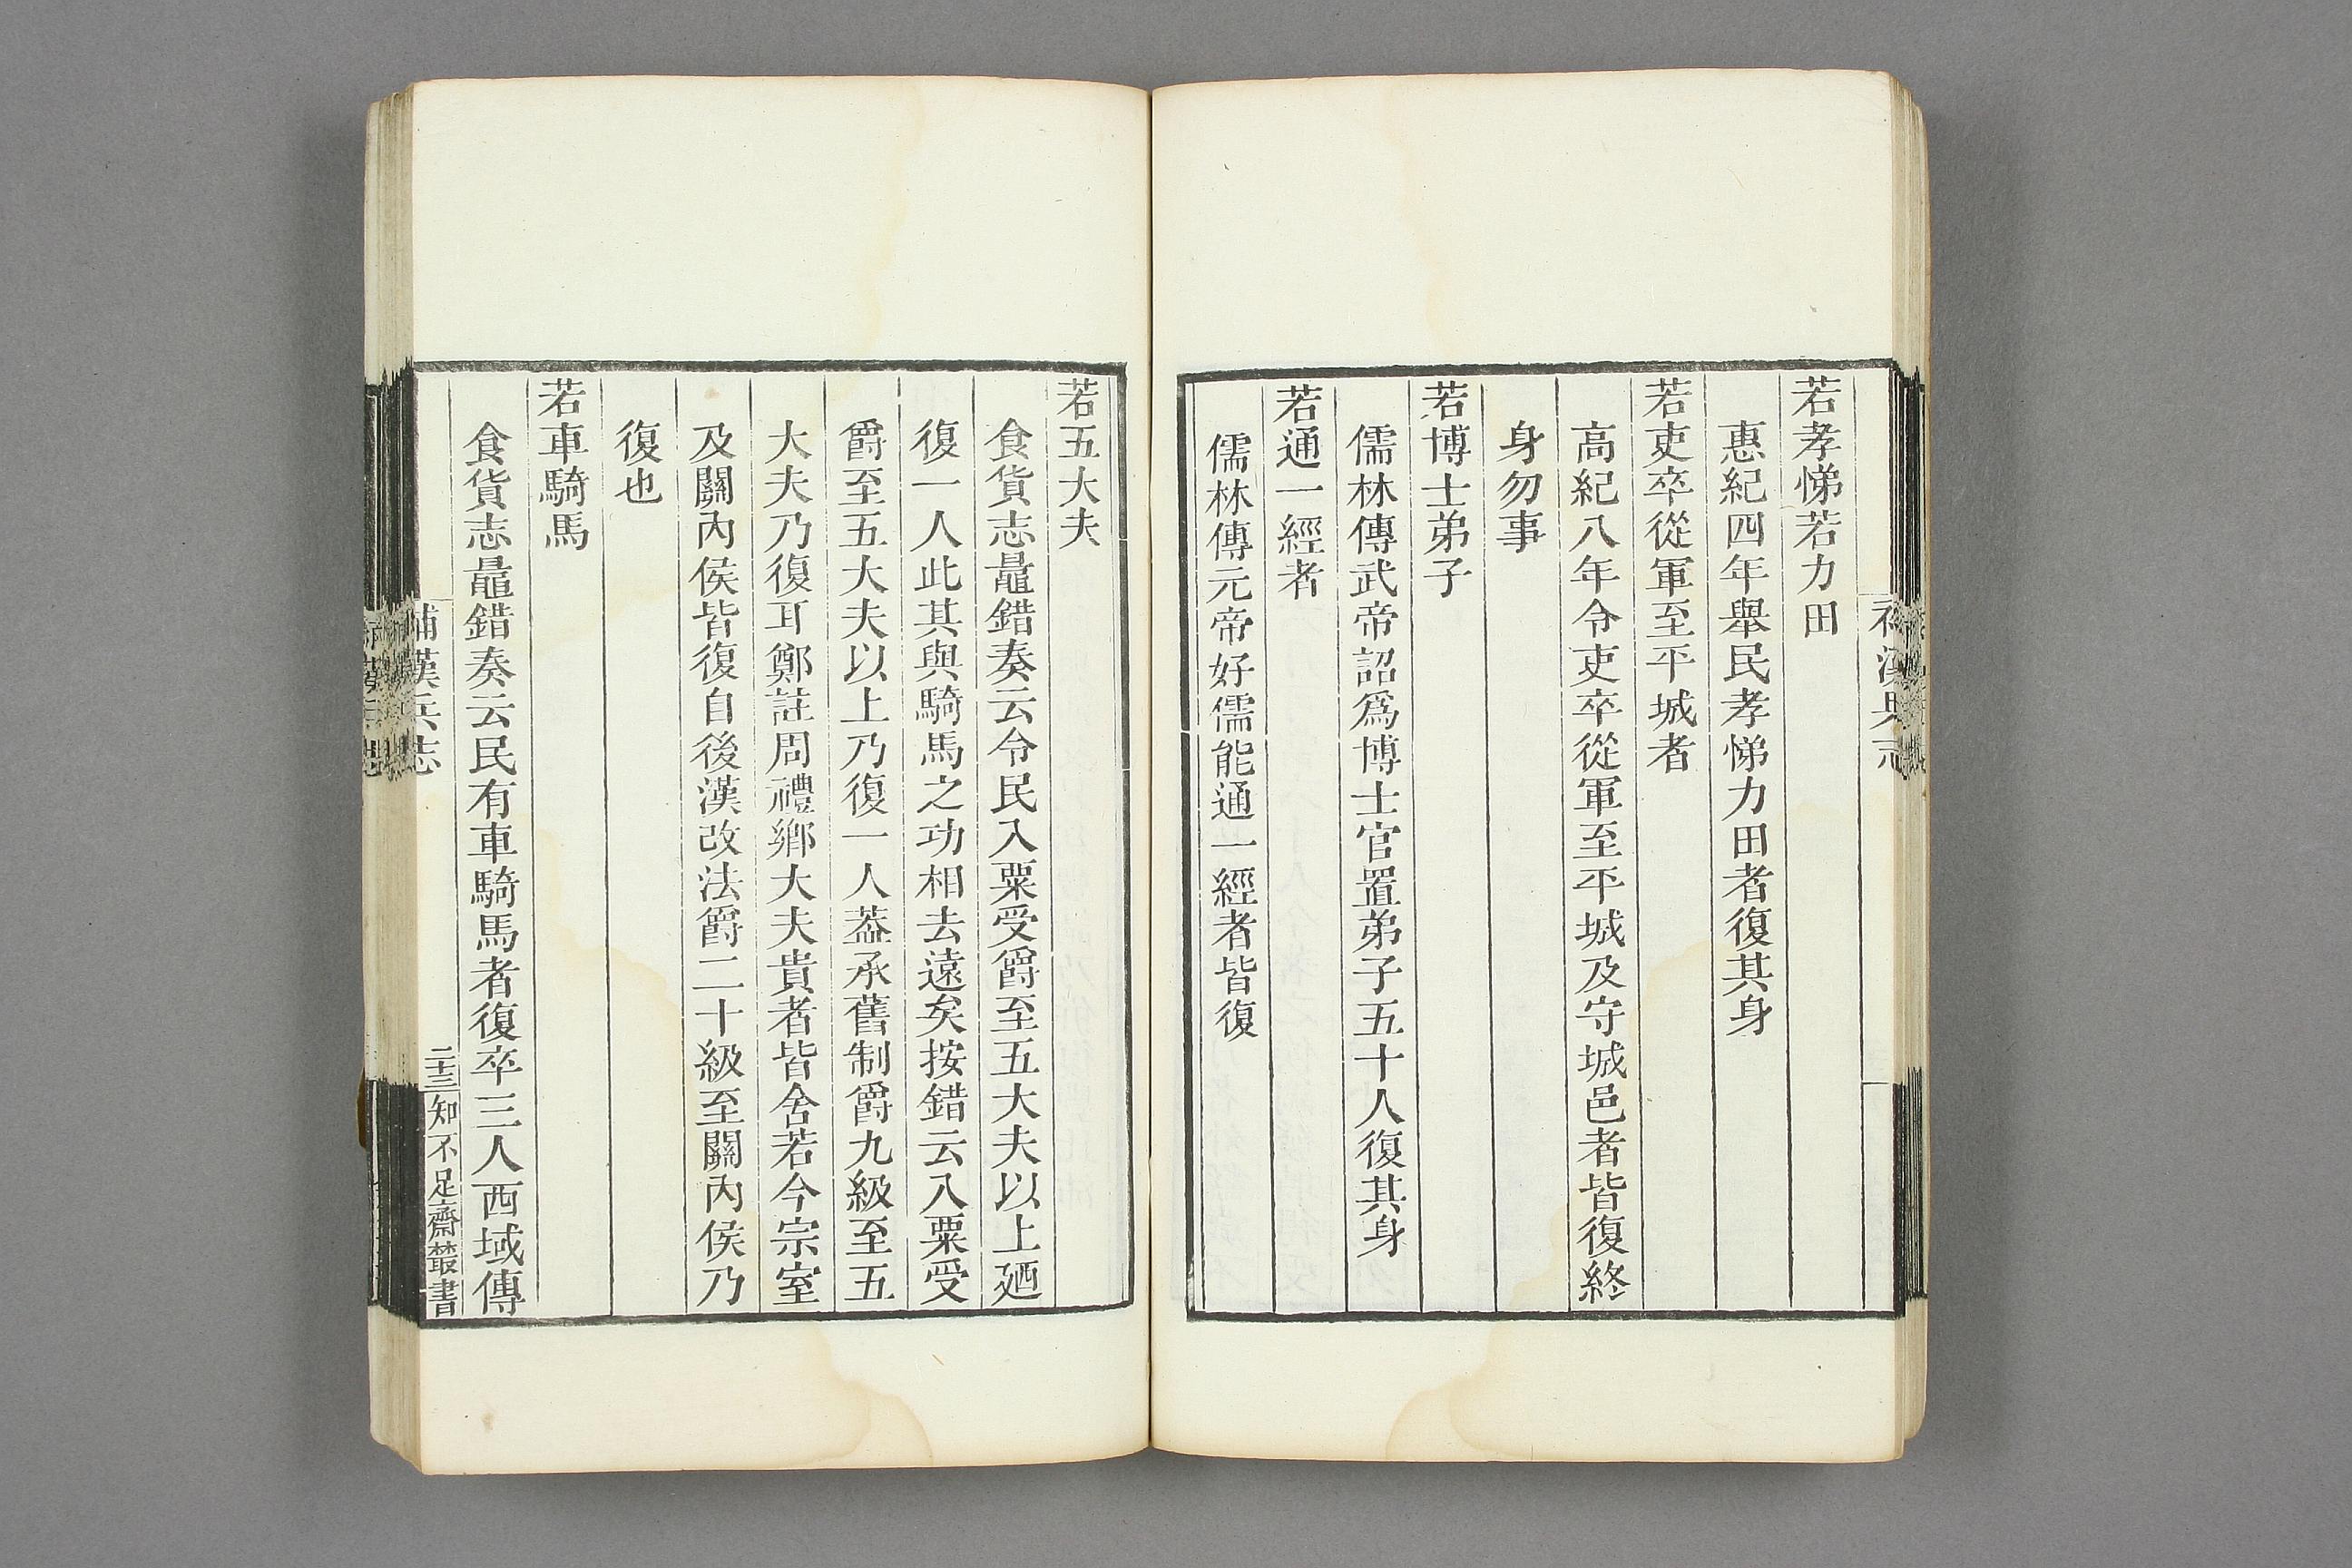 若孝悌若力田
惠紀四年舉民孝悌力田者復其身
若吏卒從軍至平城者
高紀八年令吏卒從軍至平城及守城邑者皆復終
身勿事
若博士弟子
儒林傳武帝詔爲博士官置弟子五十人復其身
若通一經者
儒林傳元帝好儒能通一經者皆復
若五大夫
食貨志鼂錯奏云令民入粟受爵至五大夫以上廼
復一人此其與騎馬之功相去遠矣按錯云入粟受
爵至五大夫以上乃復一人葢承舊制爵九級至五
大夫乃復耳鄭註周禮鄉大夫貴者皆舍若今宗室
及關內侯皆復自後漢改法爵二十級至關內侯乃
復也
若車騎馬
食貨志鼂錯奏云民有車騎馬者復卒三人西域傳
補漢兵志
二十三
知不足齋叢書